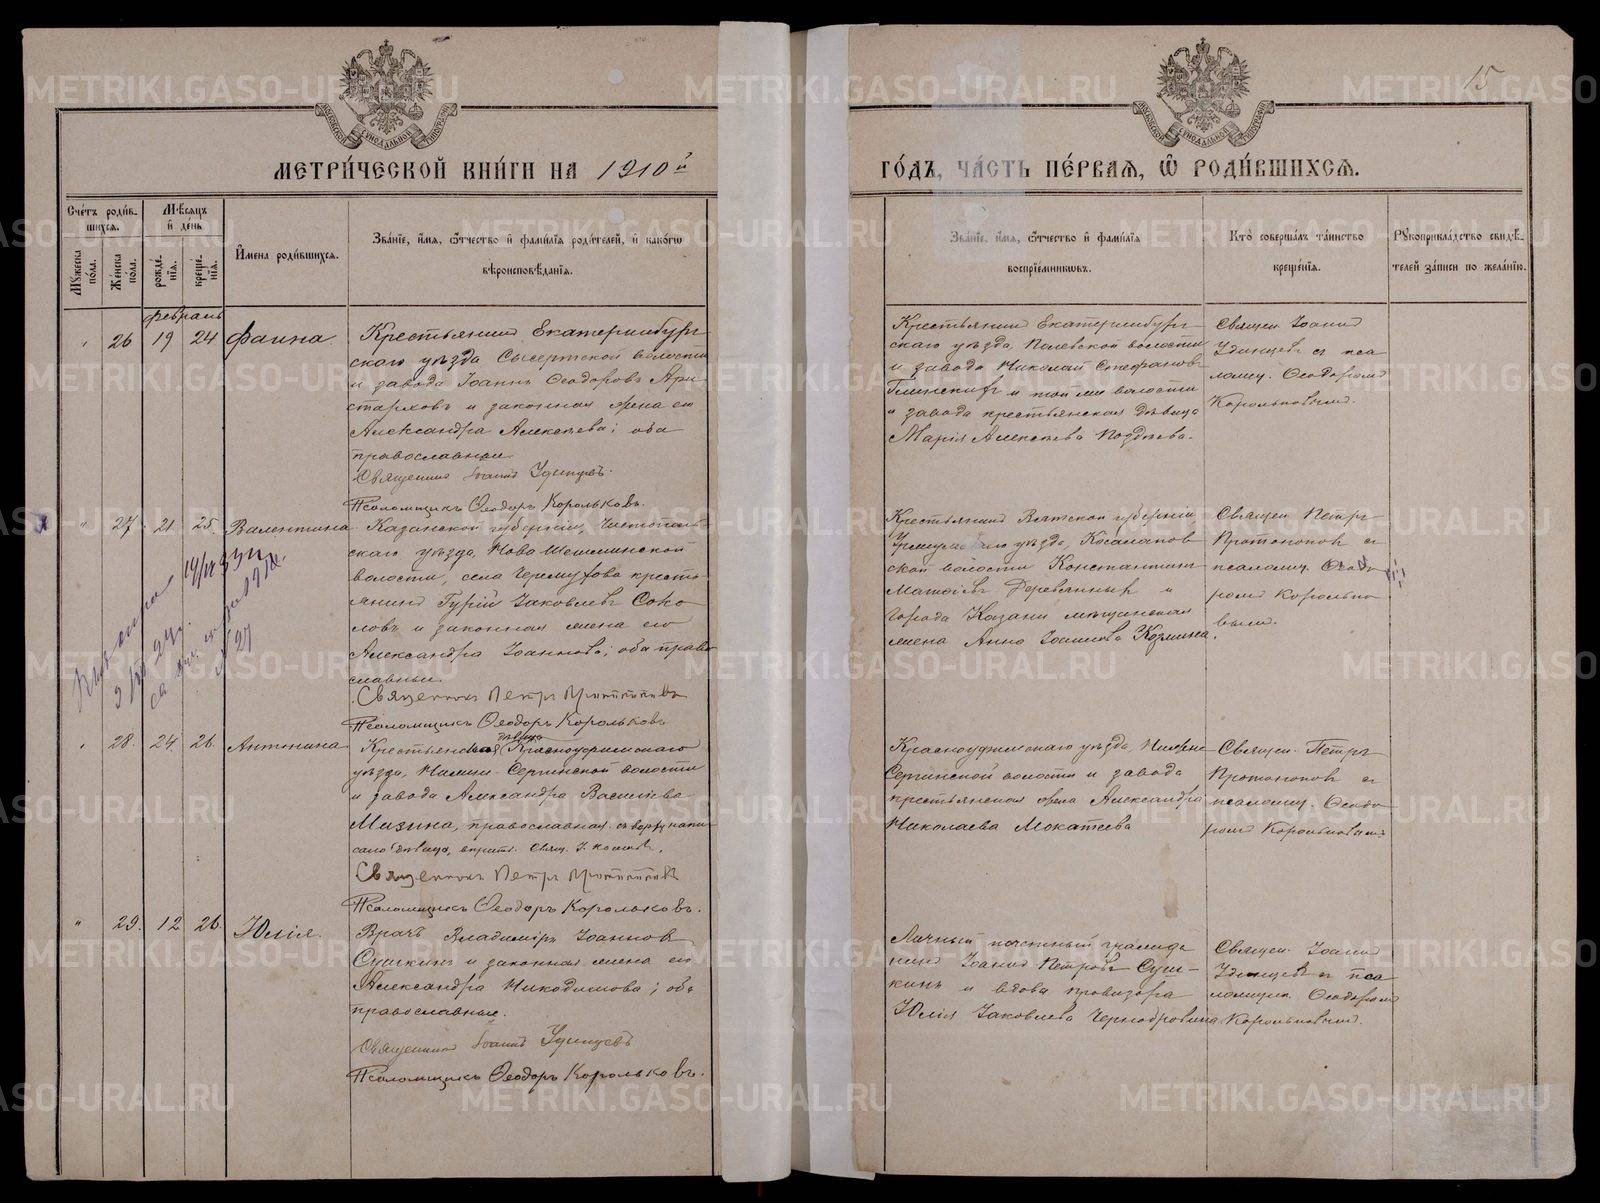 15
МЕТРИ́ЧЕСКОЙ КНИ́ГИ НА 1910й
ГО́ДЪ, ЧА́СТЬ ПЕ́РВАЯ, Ѿ РОДИ́ВШИХСЯ.
Сче́тъ роди́в-
шихся.
Мѣ́сяцъ
и҆ де́нь
Мꙋ́жеска
по́ла.
Же́нска
по́ла.
рожде́-
нїя.
креще́-
нїя.
И҆мена роди́вшихся.
Зва́нїе, и҆́мя, ѻ҆́тчество и҆ фами́лїя роди́телей, и҆ како́гѡ
вѣроисповѣ́данїя.
Зва́нїе, и҆́мя, ѻ҆́тчество и҆ фами́лїя
воспрїе́мниковъ.
Кто̀ соверша́лъ та́инство
креще́нїя.
Рꙋкоприкла́дство свидѣ́-
телей за́писи по жела́нїю.
Февраль
26 19 24 Фаина.
Крестьянинъ Екатеринбург-
скаго уѣзда Сысертской волости
и завода Іоаннъ Ѳеодоровъ Ари-
стархов и законная жена его
Александра Алексѣева; оба
православные.
Священникъ Іоаннъ Удинцевъ.
Псаломщикъ Ѳеодоръ Корольковъ.
Крестьянинъ Екатеринбург-
скаго уѣзда, Полевской волости
и завода Николай Стефановъ
и той же волости
и завода крестьянская дѣвица
Марія Алексѣева Позднева.
Священ. Іоаннъ
Удинцевъ съ пса
ломщ. Ѳеодоромъ
Корольковымъ.
" 27 21 25. Валентина
Казанской губерніи, Чистополь-
скаго уѣзда, Ново Шешминской
волости, села Черемухова кресть-
янинъ Гурій Іаковлевъ Соко
ловъ и законная жена его
Александра Іоаннова; оба право
славные.
Священникъ Петръ Протопоповъ
Псаломщикъ Ѳеодоръ Корольковъ
Крестьянинъ Вятской губерніи,
уѣзда, Косолапов
ской волости Константинъ
Матѳіевъ Деревянных и
города Казани мѣщанская
жена Анна Іоаннова Козмина.
Священ. Петръ
Протопопов съ
псаломщ. Ѳеодо
ромъ Королько
вымъ.
№ 27
28. 24. 26. Антонина
Крестьянская дѣвица Красноуфимскаго
уѣзда, Нижне-Сергинской волости
и завода Александра Василіева
Мизина, православная. съ верху напи-
сано "дѣвица" вѣрить. Свящ. І.
Священникъ Петръ Протопоповъ
Псаломщикъ Ѳеодоръ Корольковъ.
Красноуфимскаго уѣзда, Нижне-
Сергинской волости и завода
крестьянская жена Александра
Николаева Мокатеева
Священ. Петръ
Протопопов съ
псаломщ. Ѳеодо
ромъ Корольковымъ
" 29. 12 26. Юлія.
Врачъ Владиміръ Іоанновъ
Сушкинъ и законная жена его
Александра Никодимова; оба
православные.
Священникъ Іоаннъ Удинцевъ
Псаломщикъ Ѳеодоръ Корольковъ.
Личный почетный гражда
нинъ Іоаннъ Петровъ Суш-
кинъ и вдова провизора
Юлія Іаковлева Чернобровина
Священ. Іоаннъ
Удинцевъ съ пса
ломщик. Ѳеодоромъ
Корольковымъ.
METRIKI.GASO-URAL.RU